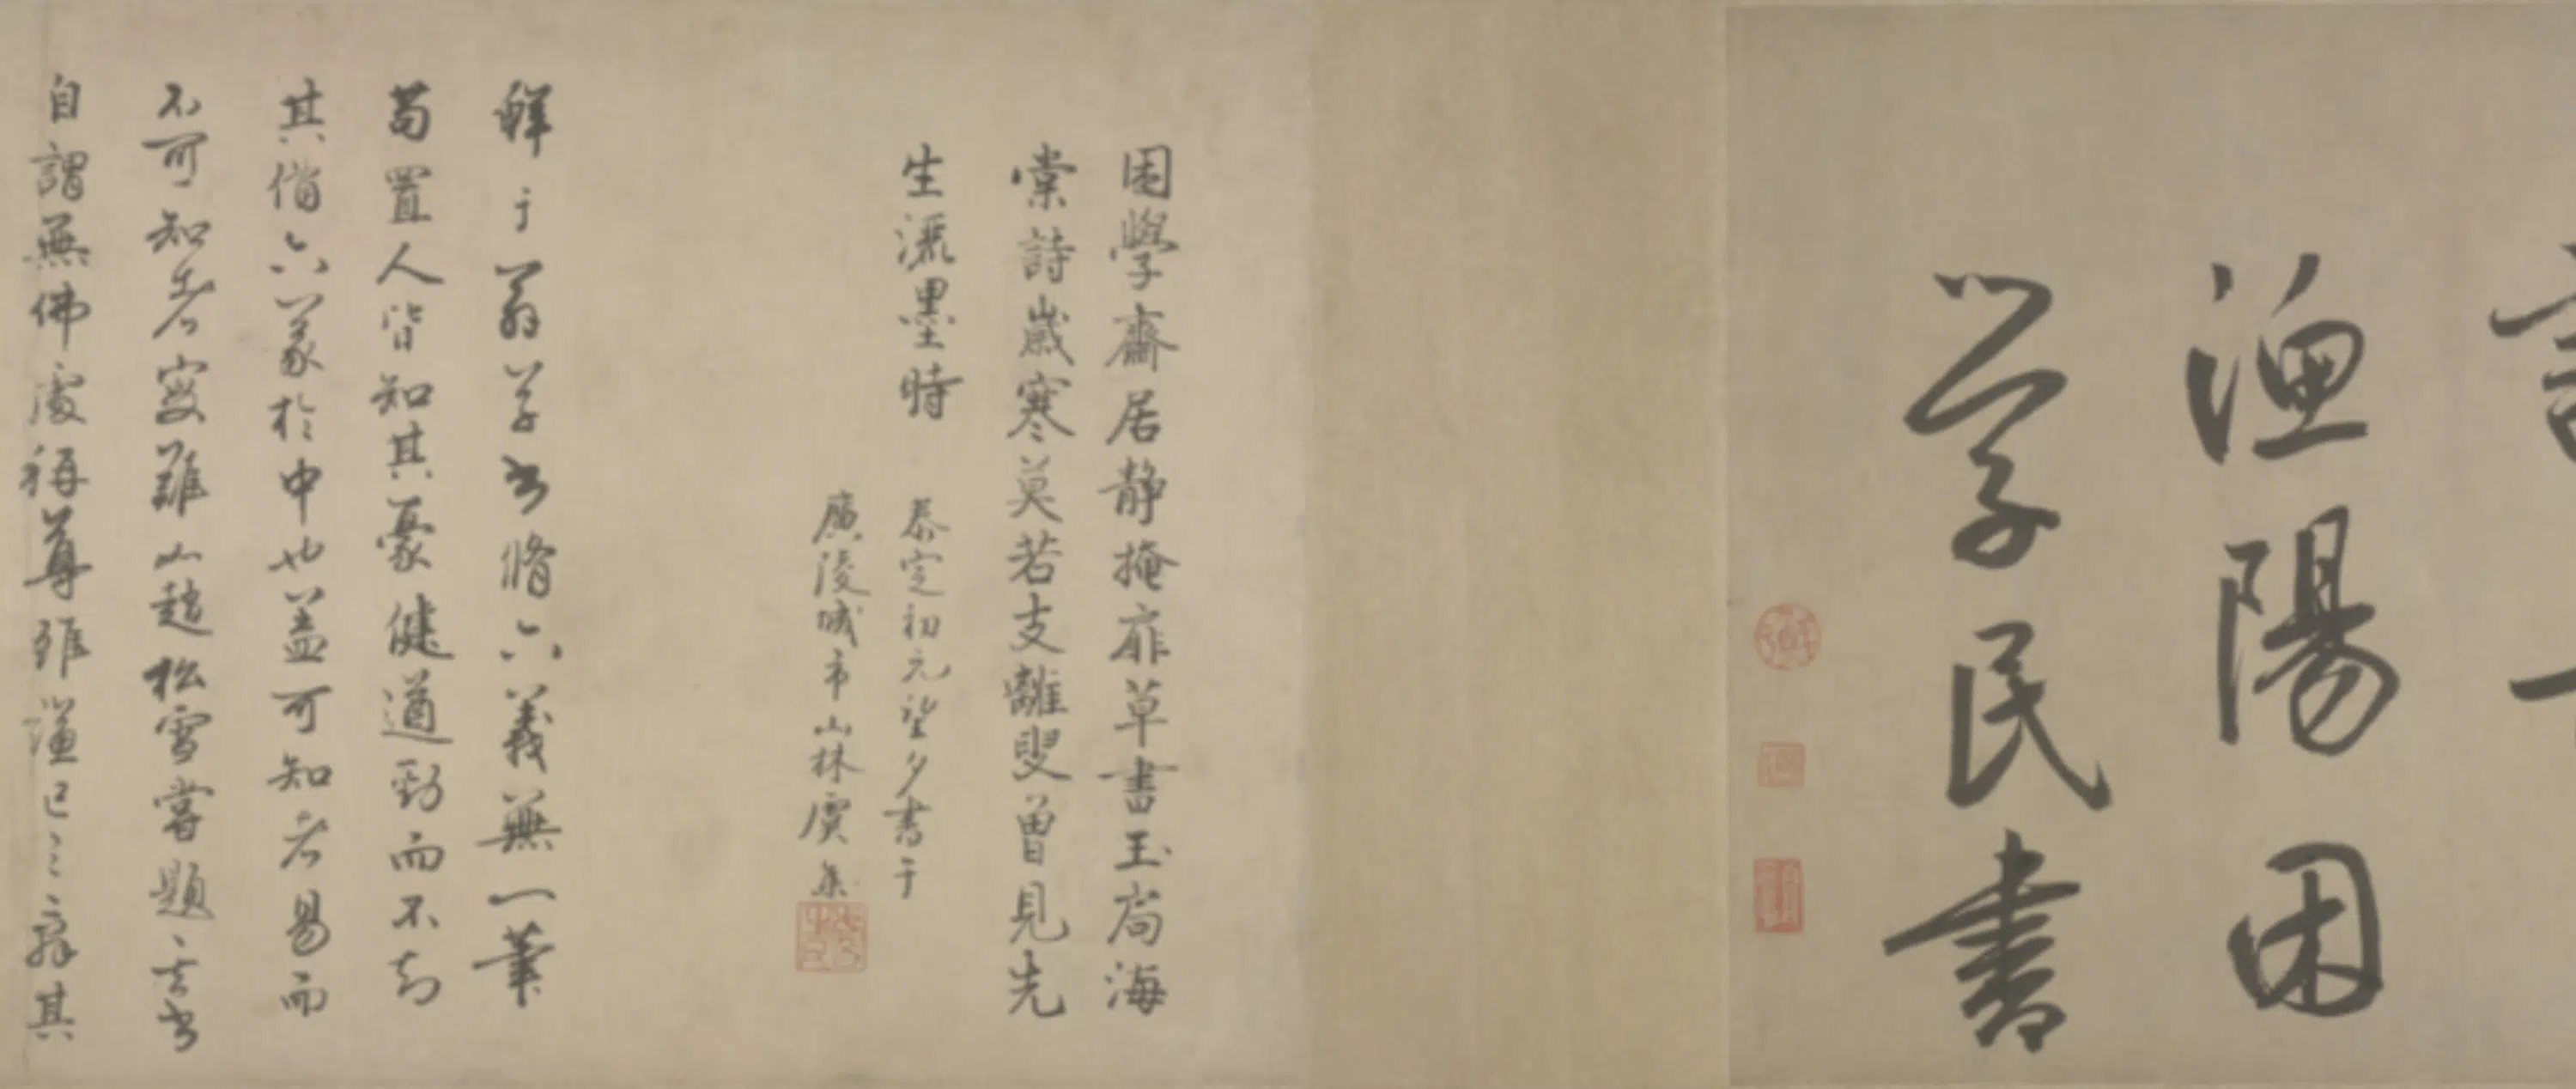 漁陽困
学民書
困學齋居静掩扉草書玉局海
棠詩歲寒莫若支離叟曽見先
生灑墨時
泰定初元望夕書于
廣陵城市山林虞集
鮮于翁草書脩六義無一筆
苟置人皆知其豪健遒勁而不知
其偕六義於中也盖可知者易而
不可知者寔難此趙松雪嘗題云書
自謂無佛處稱尊雖謙己之辞其